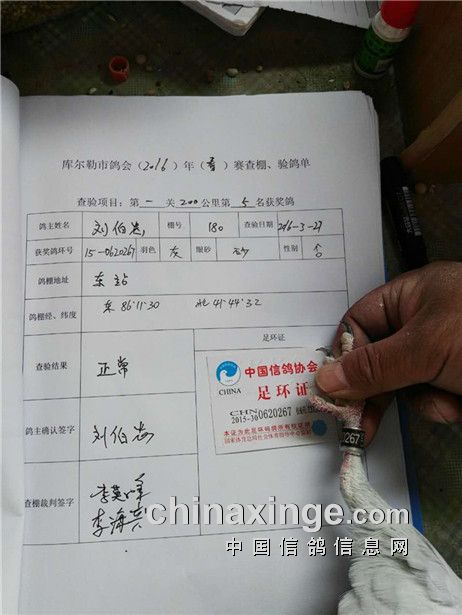 库尔勒市鸽会（2016）年（春）赛查棚、验鸽单
查验项目：第一关200公里第5名获奖鸽
鸽主姓名 刘伯忠 棚号 180 查验日期 2016-3-27
获奖鸽环号 15-0620267 羽色 灰 眼砂 砂 性别
鸽棚地址 东站
鸽棚经、纬度 东 86·11·30 北 41·44·32
查验结果 正常
足环证
中国信鸽协会
足环证
CHINA
CHN
2015-30 0620267
本证为此足环鸽所有权证明
国家体育总局社会体育指导中心监制
0267
鸽主确认签字 刘伯忠
查棚裁判签字 李英峰
李海兵
chinaxinge.com
中国信鸽信息网